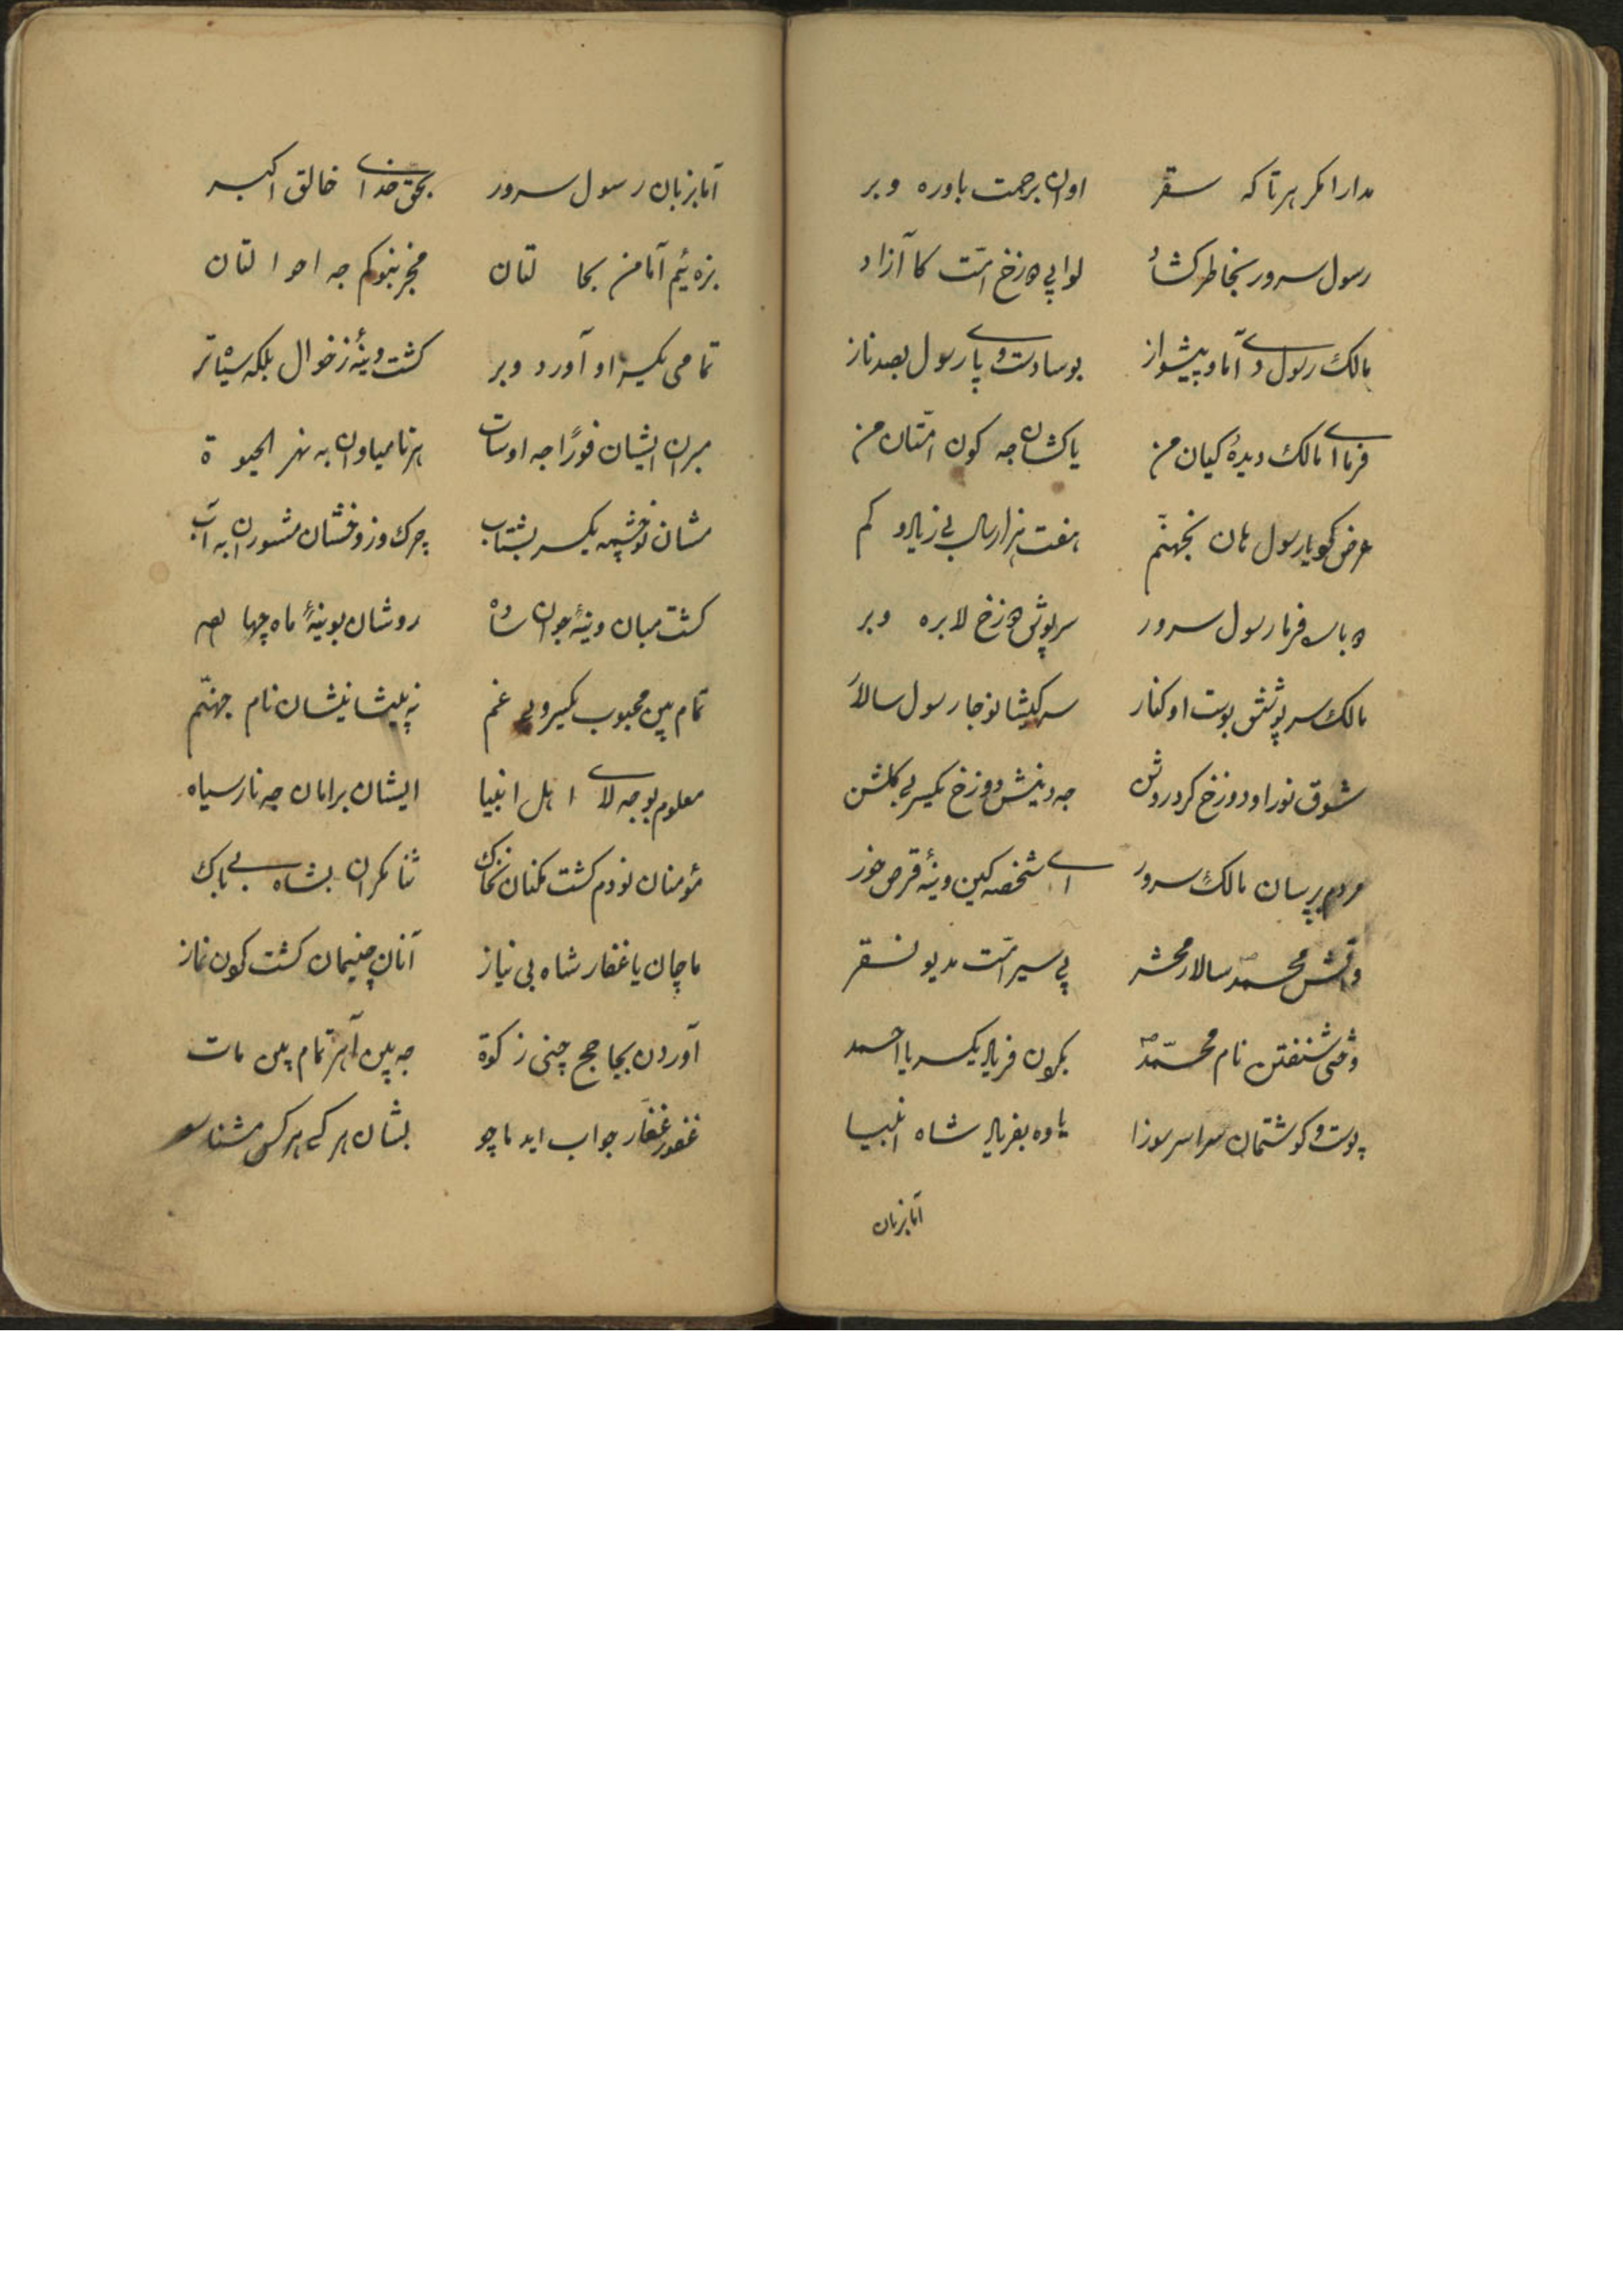 مدارا مکر هرتا که سقر اوان برحمت باوره وبر
رسول سرور بخاطر کشاد لوا پی دوزخ امت کا آزاد
مالک رسول دی آما و پیشواز بوسا دست و پای رسول بصد ناز
فرما ای مالک دیدۀ کیان من یا کشان جه کون امتان من
عرض کو یا رسول هان بجهنم هفت هزار سال بی زیاد و کم
فرما رسول سرور سرپوش دوزخ لا بره وبر
مالک سرپوشش بوست او کنار سر کیشا نوجا رسول سالار
شوق نور او دوزخ کرد روشن جه دینش دوزخ یکسر بی گلشن
مردم پرسان مالک سرور ای شخصه کین وینۀ قرص خور
واتش محمد سالار محشر پی سیر امت مدیو نسقر
وختی شنفتن نام محمد بکرون فریاد یکسر یا احمد
پوست و کوشتمان سراسر سوزا یاوه بفریاد شاه انبیا
آما بزبان
آما بزبان رسول سرور بحق خدای خالق اکبر
بزه ئیم آما من بحا لتان مخبر بنوکم جه احوا لتان
تمامی یکسر او آورد وبر کشت وینۀ زخوال بلکه سیاتر
مبران ایشان فورًا جه اوسات هرتا میاوان به نهر الحیوة
مشان نوچشمه یکسر بشتاب چرک و زوخشان مشوران به آب
کشت مبان وینۀ جوان ساده روشان بوینۀ ماه چهارده
تمام بین محبوب یکسر و بی غم نه پیشانیشان نام جهنم
معلوم بو جه لای اهل انبیا ایشان برامان جه نار سیاه
مؤمنان نودم کشت مکنان ثنا مکران بشاه بی باک
ماچان یا غفار شاه بی نیاز آنان چنیمان کشت کون نماز
آوردن بجا حج چنی زکوة جه بین آهر تمام بین مات
غفور غفار جواب اید ماچو بشان هر کی هر کس مشناسو